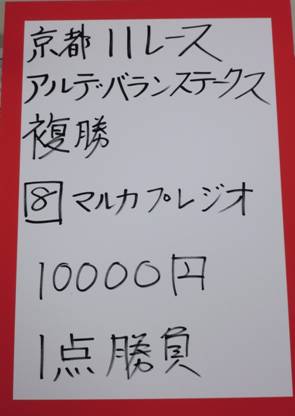 京都11レース
アルデバランステークス
複勝
8 マルカプレジオ
10000円
1点勝負